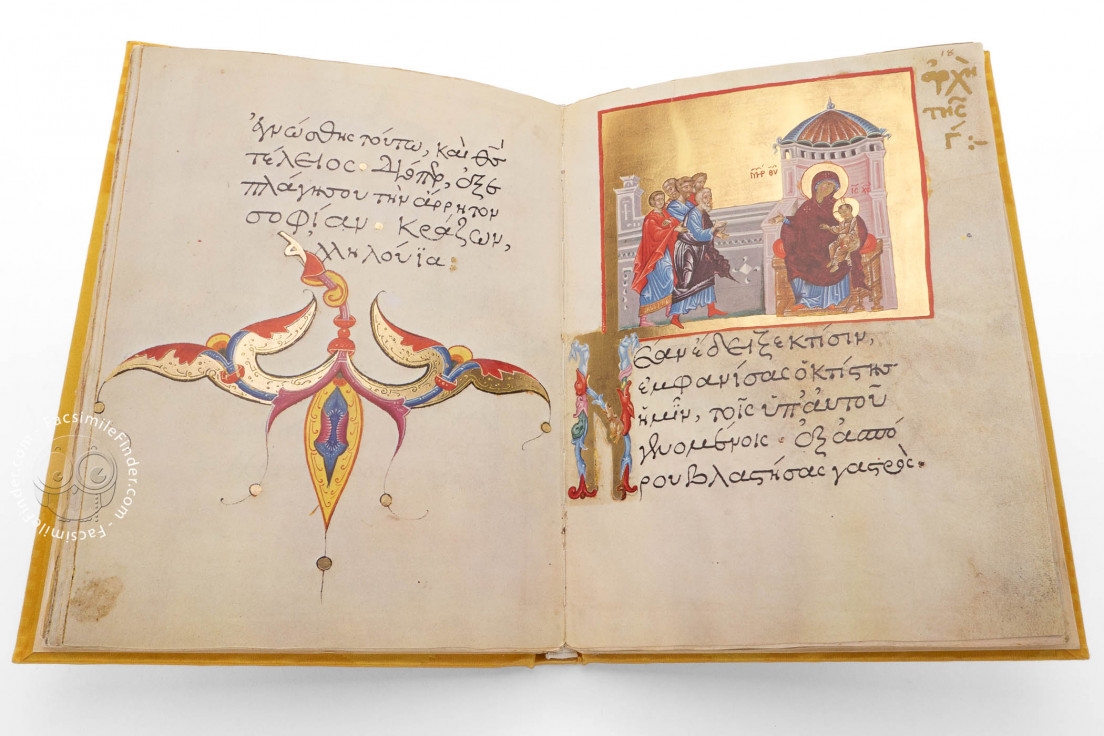 ἐγνώσθης τούτω, καὶ θς
τέλειος· διόπερ, ἐξε
πλάγη σου τὴν ἄρρητον
σοφίαν· κράζων,
ἀλληλούϊα:
ἀρχὴ
τῆς
ΜΗΡ ΘΥ
ΙC ΧC
Νέαν ἔδειξε κτίσιν,
ἐμφανίσας ὁ κτίστης
ἡμῖν, τοῖς ὑπ' αὐτοῦ
γενομένοις· ἐξ ἀσπό
ρου βλαστήσας γαστρός·
FacsimileFinder.com - FacsimileFinder.com